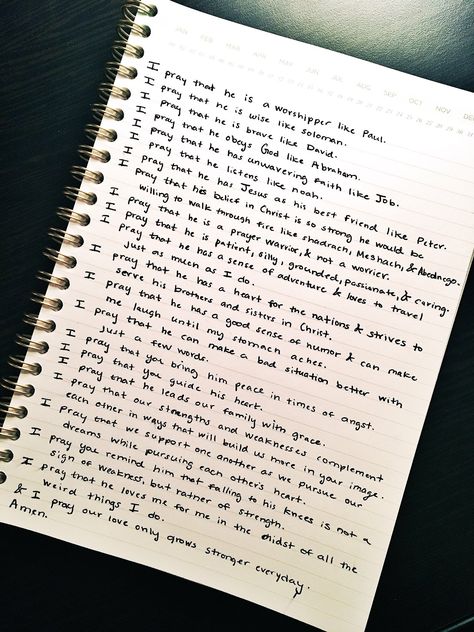 JAN FEB MAR APR MAY JUN JUL AUG SEP OCT NOV DEC
I pray that he is a worshipper like Paul.
I pray that he is wise like soloman.
I pray that he is brave like David.
I pray that he obeys God like Abraham.
I pray that he has unwavering faith like Job.
I pray that he listens like noah.
I pray that he has Jesus as his best friend like Peter.
I pray that his belief in Christ is so strong he would be
willing to walk through fire like shadrach, Meshach, & Abednago.
I pray that he is a prayer warrior, & not a worrier.
I pray that he is patient, silly, grounded, passionate, & caring.
I pray that he has a sense of adventure & loves to travel
just as much as I do.
I pray that he has a heart for the nations & strives to
serve his brothers and sisters in Christ.
I pray that he has a good sense of humor & can make
me laugh until my stomach aches.
I pray that he can make a bad situation better with
just a few words.
I pray that you bring him peace in times of angst.
I pray that you guide his heart.
I pray that he leads our family with grace.
I pray that our strengths and weaknesses complement
each other in ways that will build us more in your image.
I pray that we support one another as we pursue our
dreams while pursuing each other's heart.
I pray you remind him that falling to his knees is not a
sign of weakness, but rather of strength.
I pray that he loves me for me in the midst of all the
weird things I do.
& I pray our love only grows stronger everyday.
Amen.